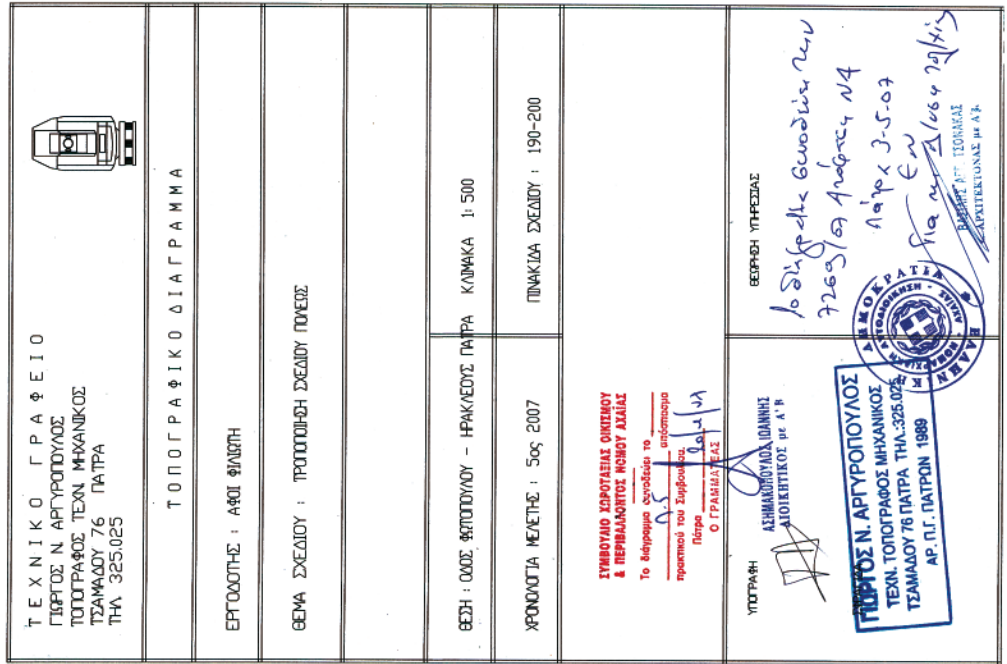 ΤΕΧΝΙΚΟ ΓΡΑΦΕΙΟ
ΓΙΩΡΓΟΣ Ν. ΑΡΓΥΡΟΠΟΥΛΟΣ
ΤΟΠΟΓΡΑΦΟΣ ΤΕΧΝ. ΜΗΧΑΝΙΚΟΣ
ΤΣΑΜΑΔΟΥ 76 ΠΑΤΡΑ
ΤΗΛ 325.025
ΤΟΠΟΓΡΑΦΙΚΟ ΔΙΑΓΡΑΜΜΑ
ΕΡΓΟΔΟΤΗΣ : ΑΦΟΙ ΦΙΛΙΩΤΗ
ΘΕΜΑ ΣΧΕΔΙΟΥ : ΤΡΟΠΟΠΟΙΗΣΗ ΣΧΕΔΙΟΥ ΠΟΛΕΩΣ
ΘΕΣΗ : ΟΔΟΣ ΦΩΤΟΠΟΥΛΟΥ - ΗΡΑΚΛΕΟΥΣ ΠΑΤΡΑ ΚΛΙΜΑΚΑ 1:500
ΧΡΟΝΟΛΟΓΙΑ ΜΕΛΕΤΗΣ : 5ος 2007
ΠΙΝΑΚΙΔΑ ΣΧΕΔΙΟΥ : 190-200
ΣΥΜΒΟΥΛΙΟ ΧΩΡΟΤΑΞΙΑΣ ΟΙΚΙΣΜΟΥ
& ΠΕΡΙΒΑΛΛΟΝΤΟΣ ΝΟΜΟΥ ΑΧΑΪΑΣ
Το διάγραμμα συνοδεύει το
απόσπασμα
πρακτικού του Συμβουλίου.
Πάτρα
Ο ΓΡΑΜΜΑΤΕΑΣ
ΑΣΗΜΑΚΟΠΟΥΛΟΣ ΙΩΑΝΝΗΣ
ΔΙΟΙΚΗΤΙΚΟΣ με Α'Β
ΥΠΟΓΡΑΦΗ
ΓΙΩΡΓΟΣ Ν. ΑΡΓΥΡΟΠΟΥΛΟΣ
ΤΕΧΝ. ΤΟΠΟΓΡΑΦΟΣ ΜΗΧΑΝΙΚΟΣ
ΤΣΑΜΑΔΟΥ 76 ΠΑΤΡΑ ΤΗΛ.:325.025
ΑΡ. Π.Γ. ΠΑΤΡΩΝ 1989
ΘΕΩΡΗΣΗ ΥΠΗΡΕΣΙΑΣ
Το διάγραμμα συνοδεύει την
7269/07 Απόφαση ΝΑ
Πάτρα 3-5-07
ΕΛΛΗΝΙΚΗ ΔΗΜΟΚΡΑΤΙΑ
ΝΟΜΑΡΧΙΑΚΗ ΑΥΤΟΔΙΟΙΚΗΣΗ ΑΧΑΪΑΣ
ΤΣΟΝΑΚΑΣ
ΑΡΧΙΤΕΚΤΟΝΑΣ με Α'β.